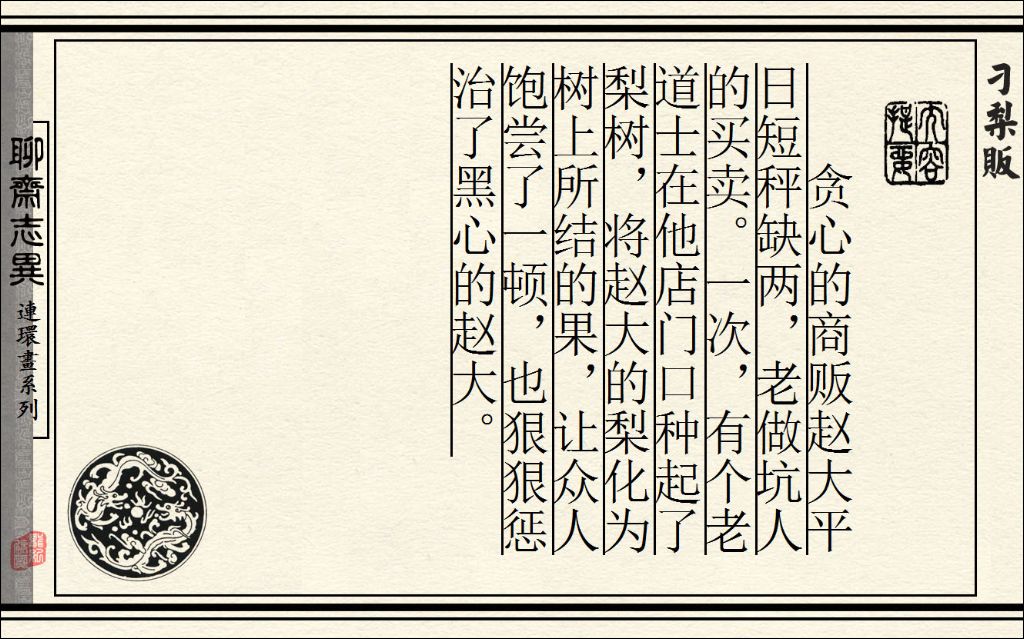 刁梨販
内容提要
贪心的商贩赵大平
日短秤缺两，老做坑人
的买卖。一次，有个老
道士在他店门口种起了
梨树，将赵大的梨化为
树上所结的果，让众人
饱尝了一顿，也狠狠惩
治了黑心的赵大。
聊齋志異
連環畫系列